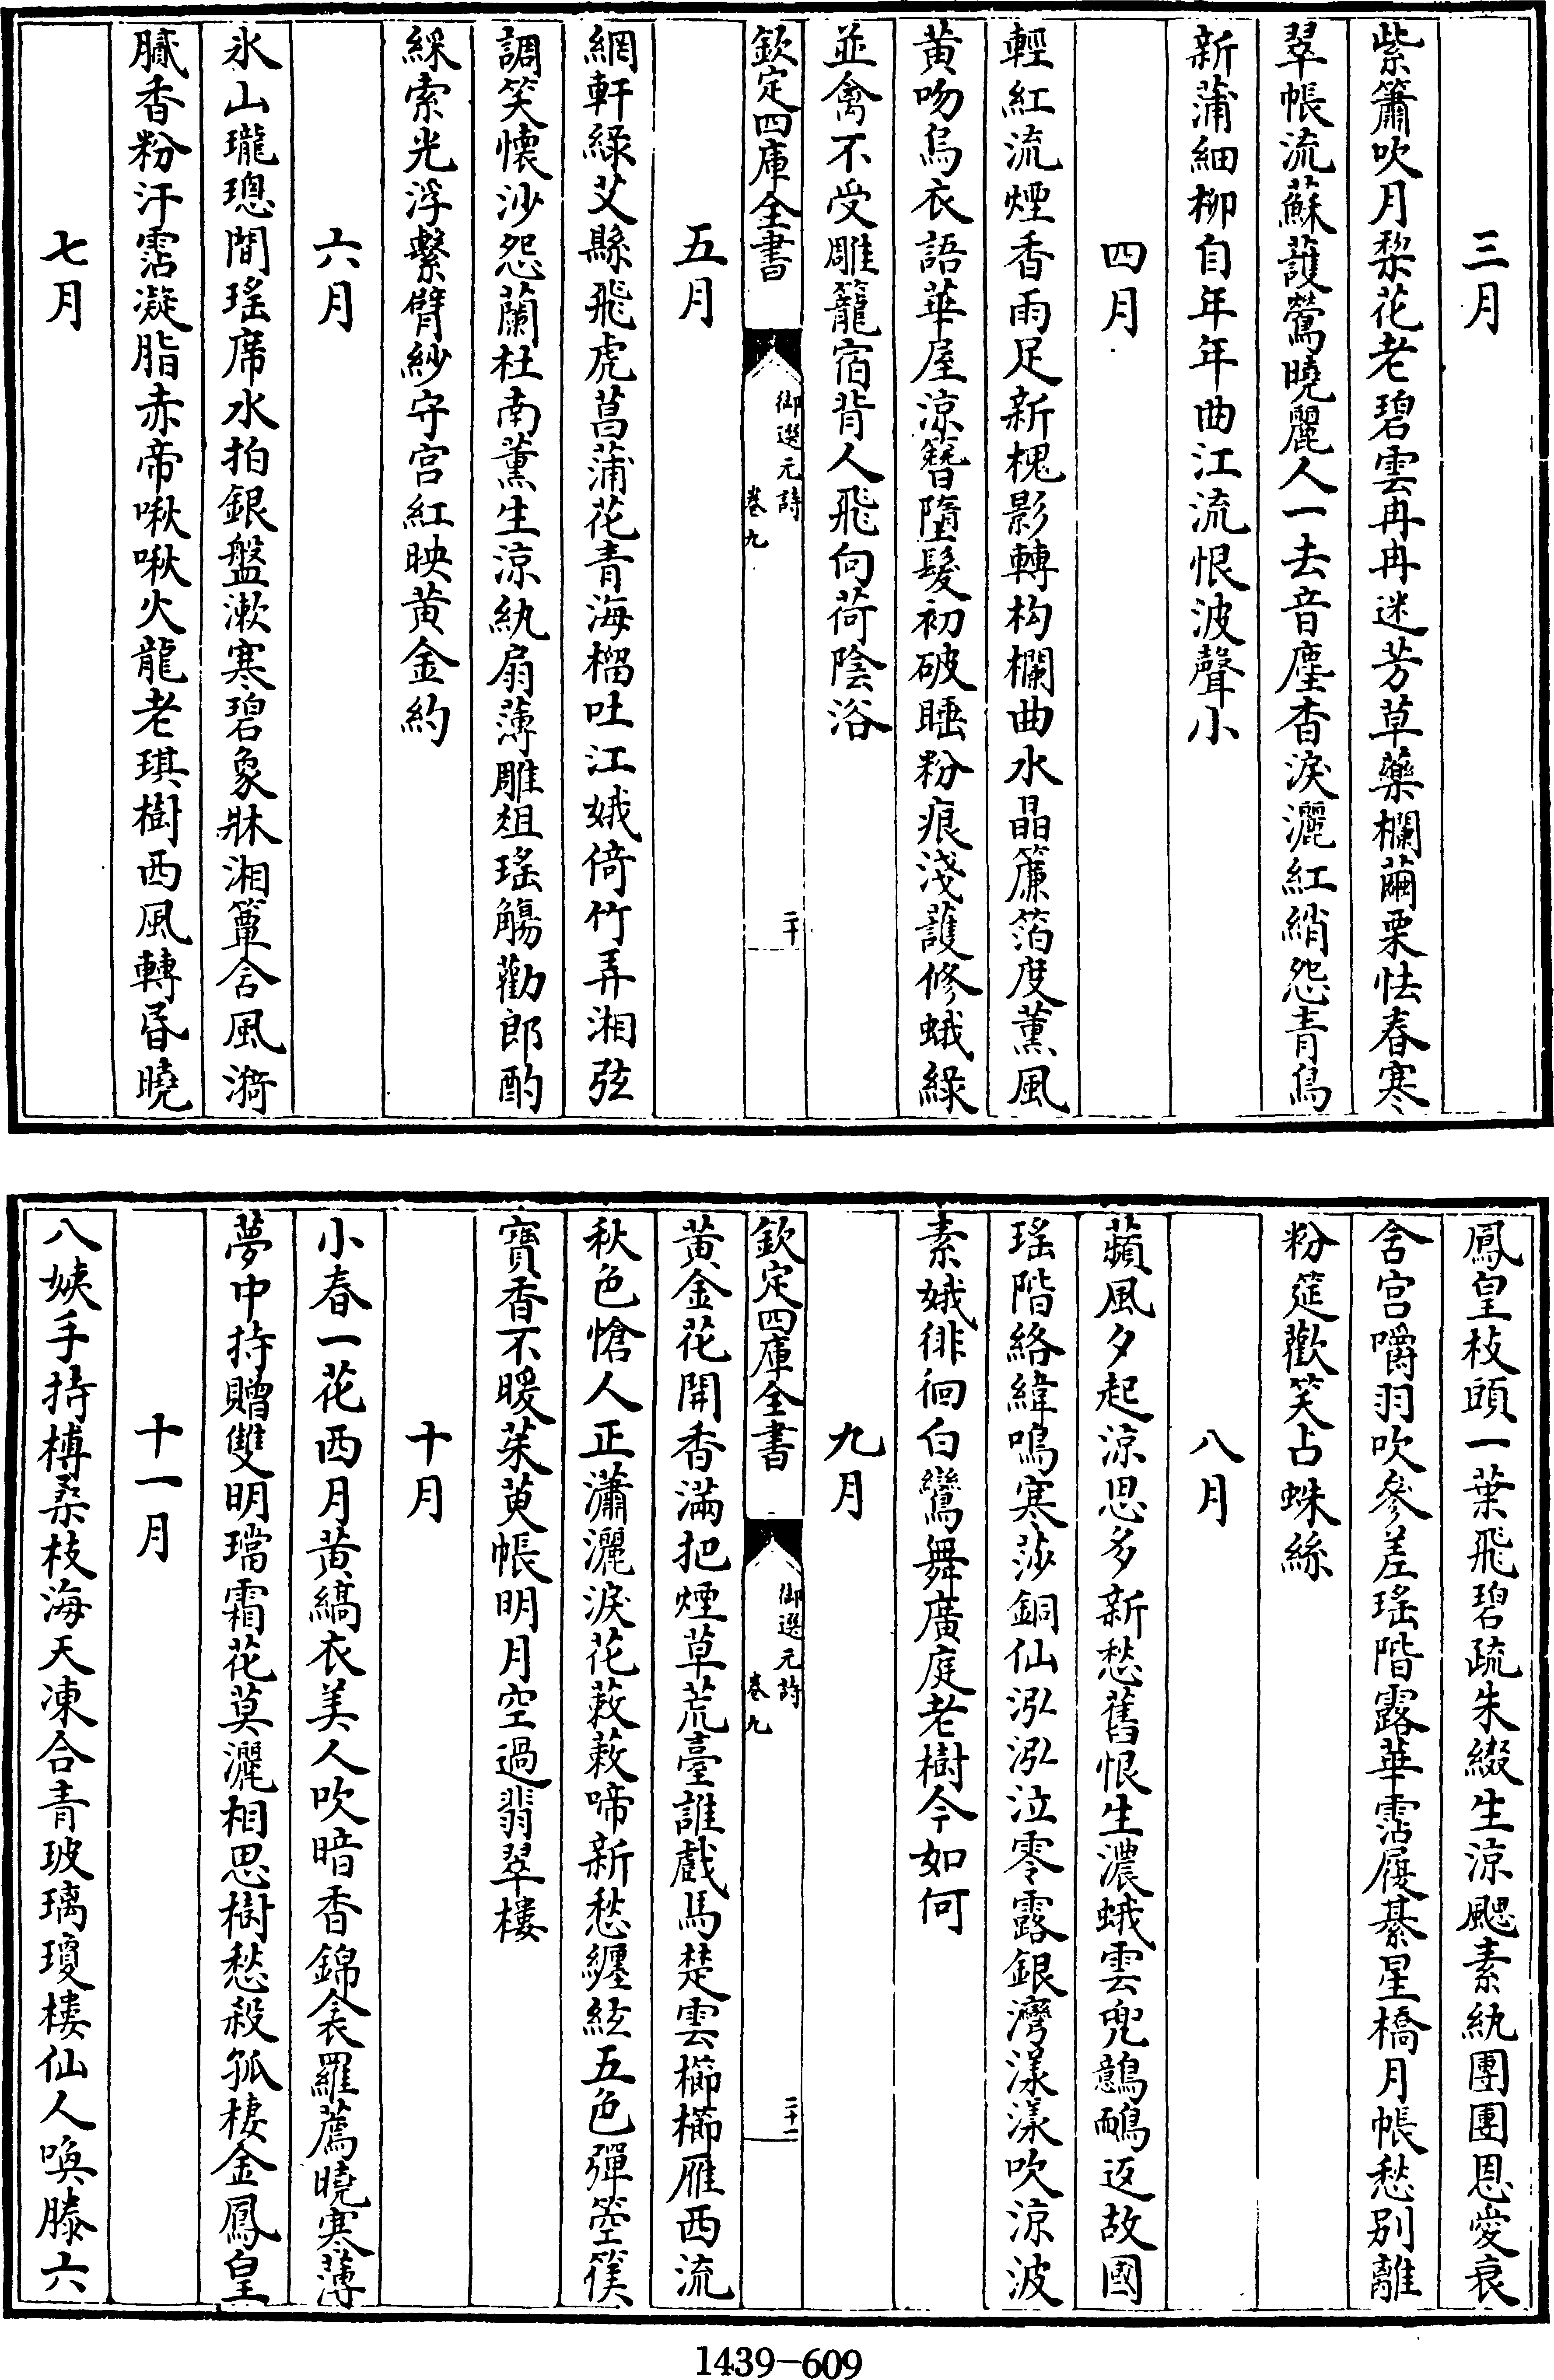 三月
紫簫吹月棃花老碧雲冉冉迷芳草藥欄繭栗怯春寒
翠帳流蘇護鶯曉麗人一去音塵杳淚灑紅綃怨青鳥
新蒲細柳自年年曲江流恨波聲小
四月
輕紅流煙香雨足新槐影轉构欄曲水晶簾箔度薰風
黄吻烏衣語華屋涼簪墮髮初破睡粉痕淺護修蛾綠
並禽不受雕籠宿背人飛向荷陰浴
欽定四庫全書
御選元詩
卷九
二十
五月
網軒綠艾縣飛虎菖蒲花青海榴吐江娥倚竹弄湘弦
調笑懷沙怨蘭杜南薰生涼紈扇薄雕俎瑤觴勸郎酌
綵索光浮繫臂紗守宫紅映黄金約
六月
氷山瓏璁間瑤席水拍銀盤漱寒碧象牀湘簟含風漪
膩香粉汗霑凝脂赤帝啾啾火龍老琪樹西風轉昏曉
七月
鳳皇枝頭一葉飛碧疏朱綴生涼颸素紈團團恩愛衰
含宫嚼羽吹參差瑤階露華霑履綦星橋月帳愁别離
粉筵歡笑占蛛絲
八月
蘋風夕起涼思多新愁舊恨生濃蛾雲兜鷾鴯返故國
瑤階絡緯鳴寒莎銅仙泓泓泣零露銀灣漾漾吹涼波
素娥徘徊白鸞舞廣庭老樹今如何
九月
欽定四庫全書
御選元詩
卷九
二十一
黄金花開香滿把煙草荒臺誰戲馬楚雲櫛櫛雁西流
秋色愴人正瀟灑淚花蔌蔌啼新愁纏絃五色彈箜篌
寶香不暖茱萸帳明月空過翡翠樓
十月
小春一花西月黄縞衣美人吹暗香錦衾羅薦曉寒薄
夢中持贈雙明璫霜花莫灑相思樹愁殺孤棲金鳳皇
十一月
八姨手持榑桑枝海天凍合青玻璃瓊樓仙人喚滕六
1439-609